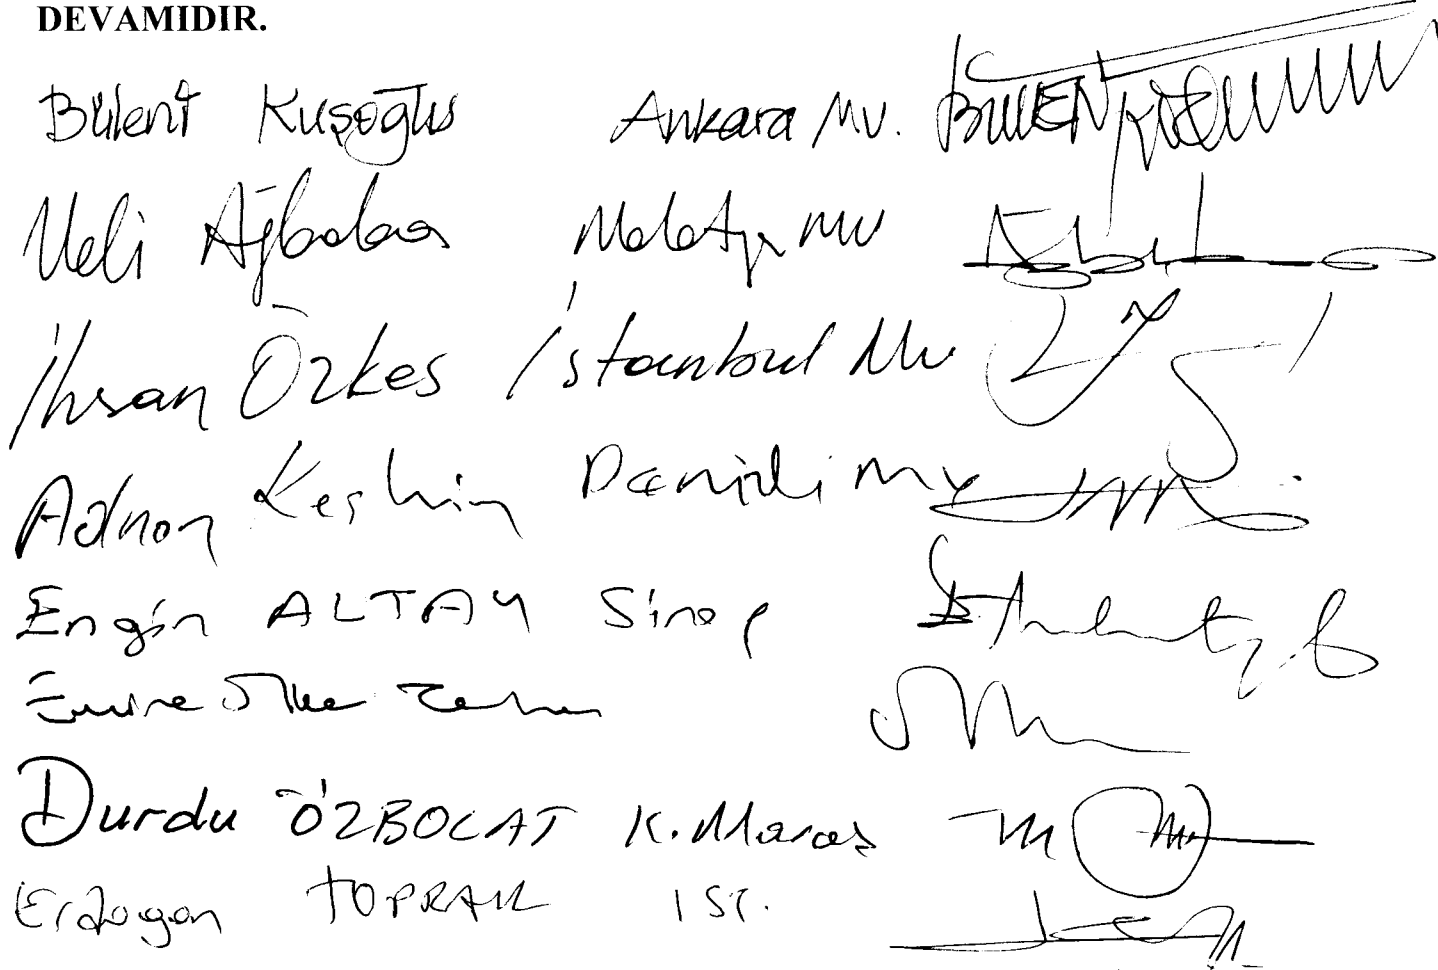 DEVAMIDIR.
Bülent Kuşoğlu Ankara Mv. BÜLENT
Veli Ağbaba Malatya Mv
İhsan Özkes İstanbul Mv
Adnan Keskin Denizli Mv
Engin ALTAY Sinop
Emine Ülker Tarhan
Durdu ÖZBOLAT K.Maraş
Erdogan TOPRAK İST.